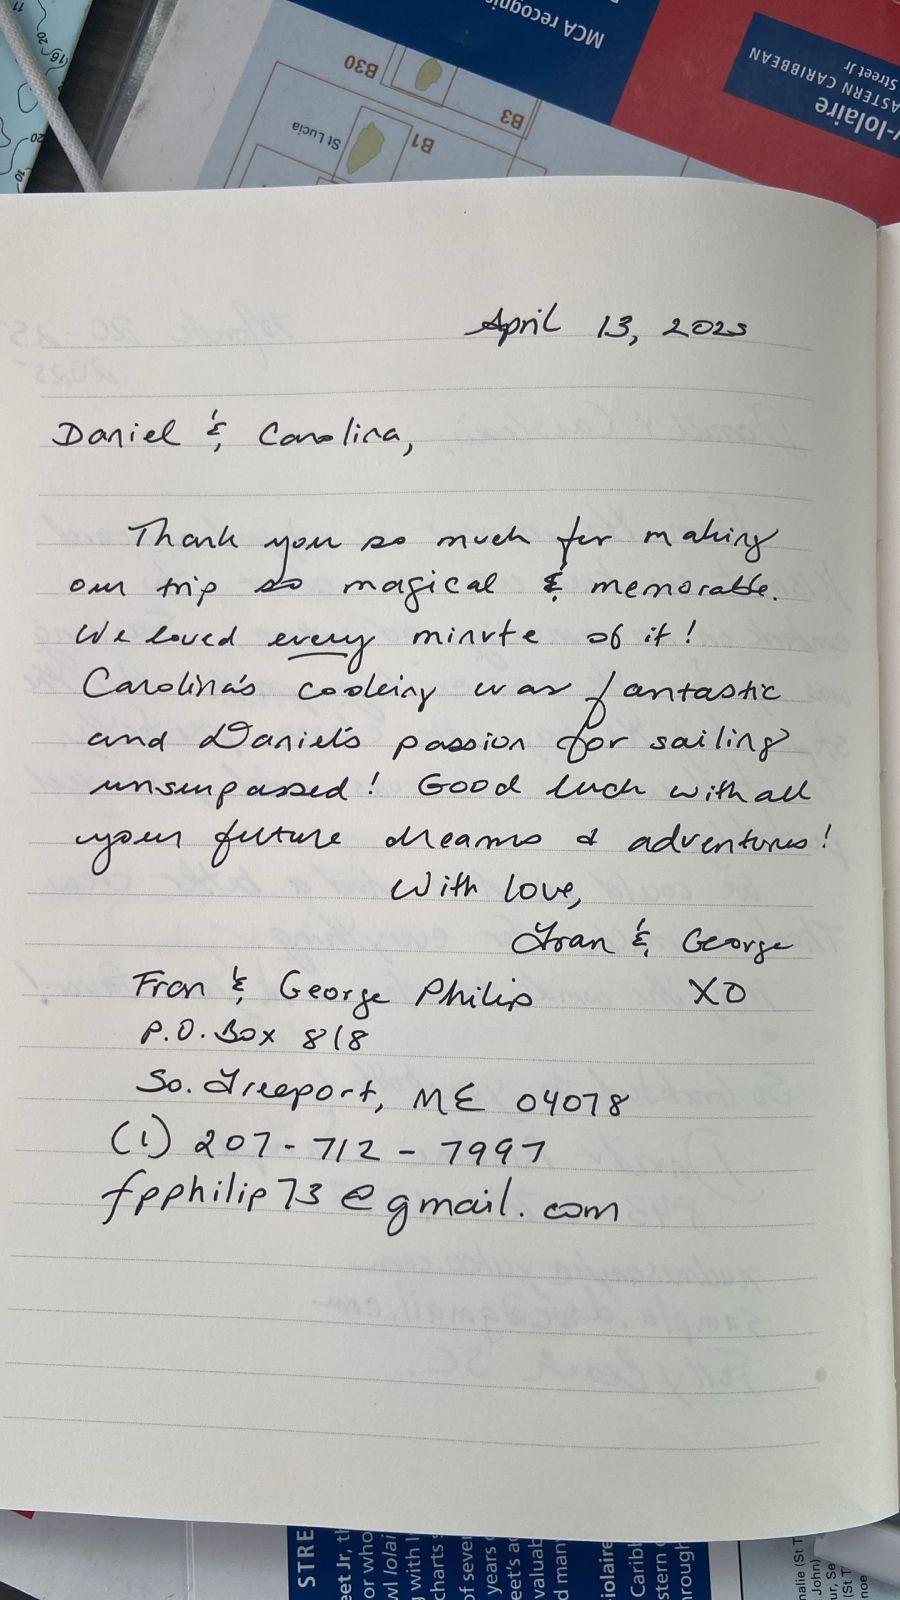 MCA recognis
EASTERN CARIBBEAN
Street Jr
-Iolaire
B30
B3
B1
St Lucia
April 13, 2025
Daniel & Carolina,
Thank you so much for making
our trip so magical & memorable.
We loved every minute of it!
Carolina's cooking was fantastic
and Daniel's passion for sailing
unsurpassed! Good luck with all
your future dreams & adventures!
With love,
Fran & George
XO
Fran & George Philip
P.O. Box 818
So. Freeport, ME 04078
(1) 207-712-7997
fpphilip73@gmail.com
STRE
eet Jr, th
or who
wl Iolai
with I
charts
of seve
years
eet's a
valuab
d man
iolaire
Caribb
stern
hrough
malie (St T
John)
ur, Se
(St T
noe